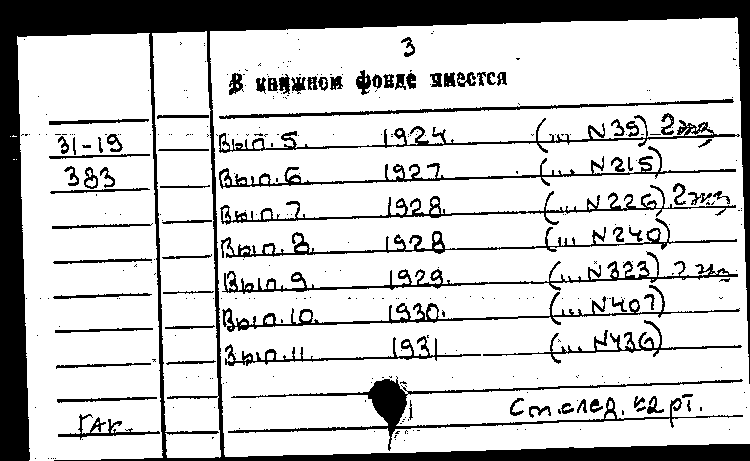 3
В книжном фонде имеется
31-19 Вып. 5. 1924. (... N 39) 2 экз
383 Вып. 6. 1927. (... N 215)
Вып. 7. 1928. (... N 226) 2 экз
Вып. 8. 1928 (... N 240)
Вып. 9. 1929. (... N 323) 2 экз
Вып. 10. 1930. (... N 407)
Вып. 11. 1931 (... N 436)
См. след. карт.
ГАК.